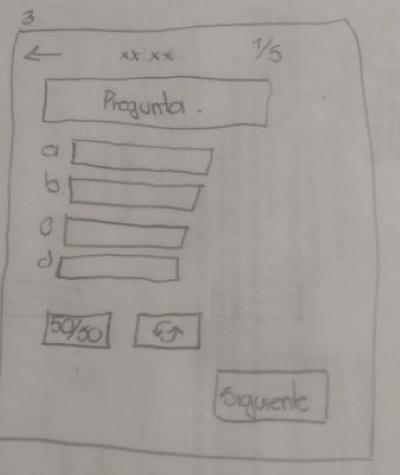 3.
← xx xx 1/5
Pregunta.
a
b.
c
d
50/50
Siguiente